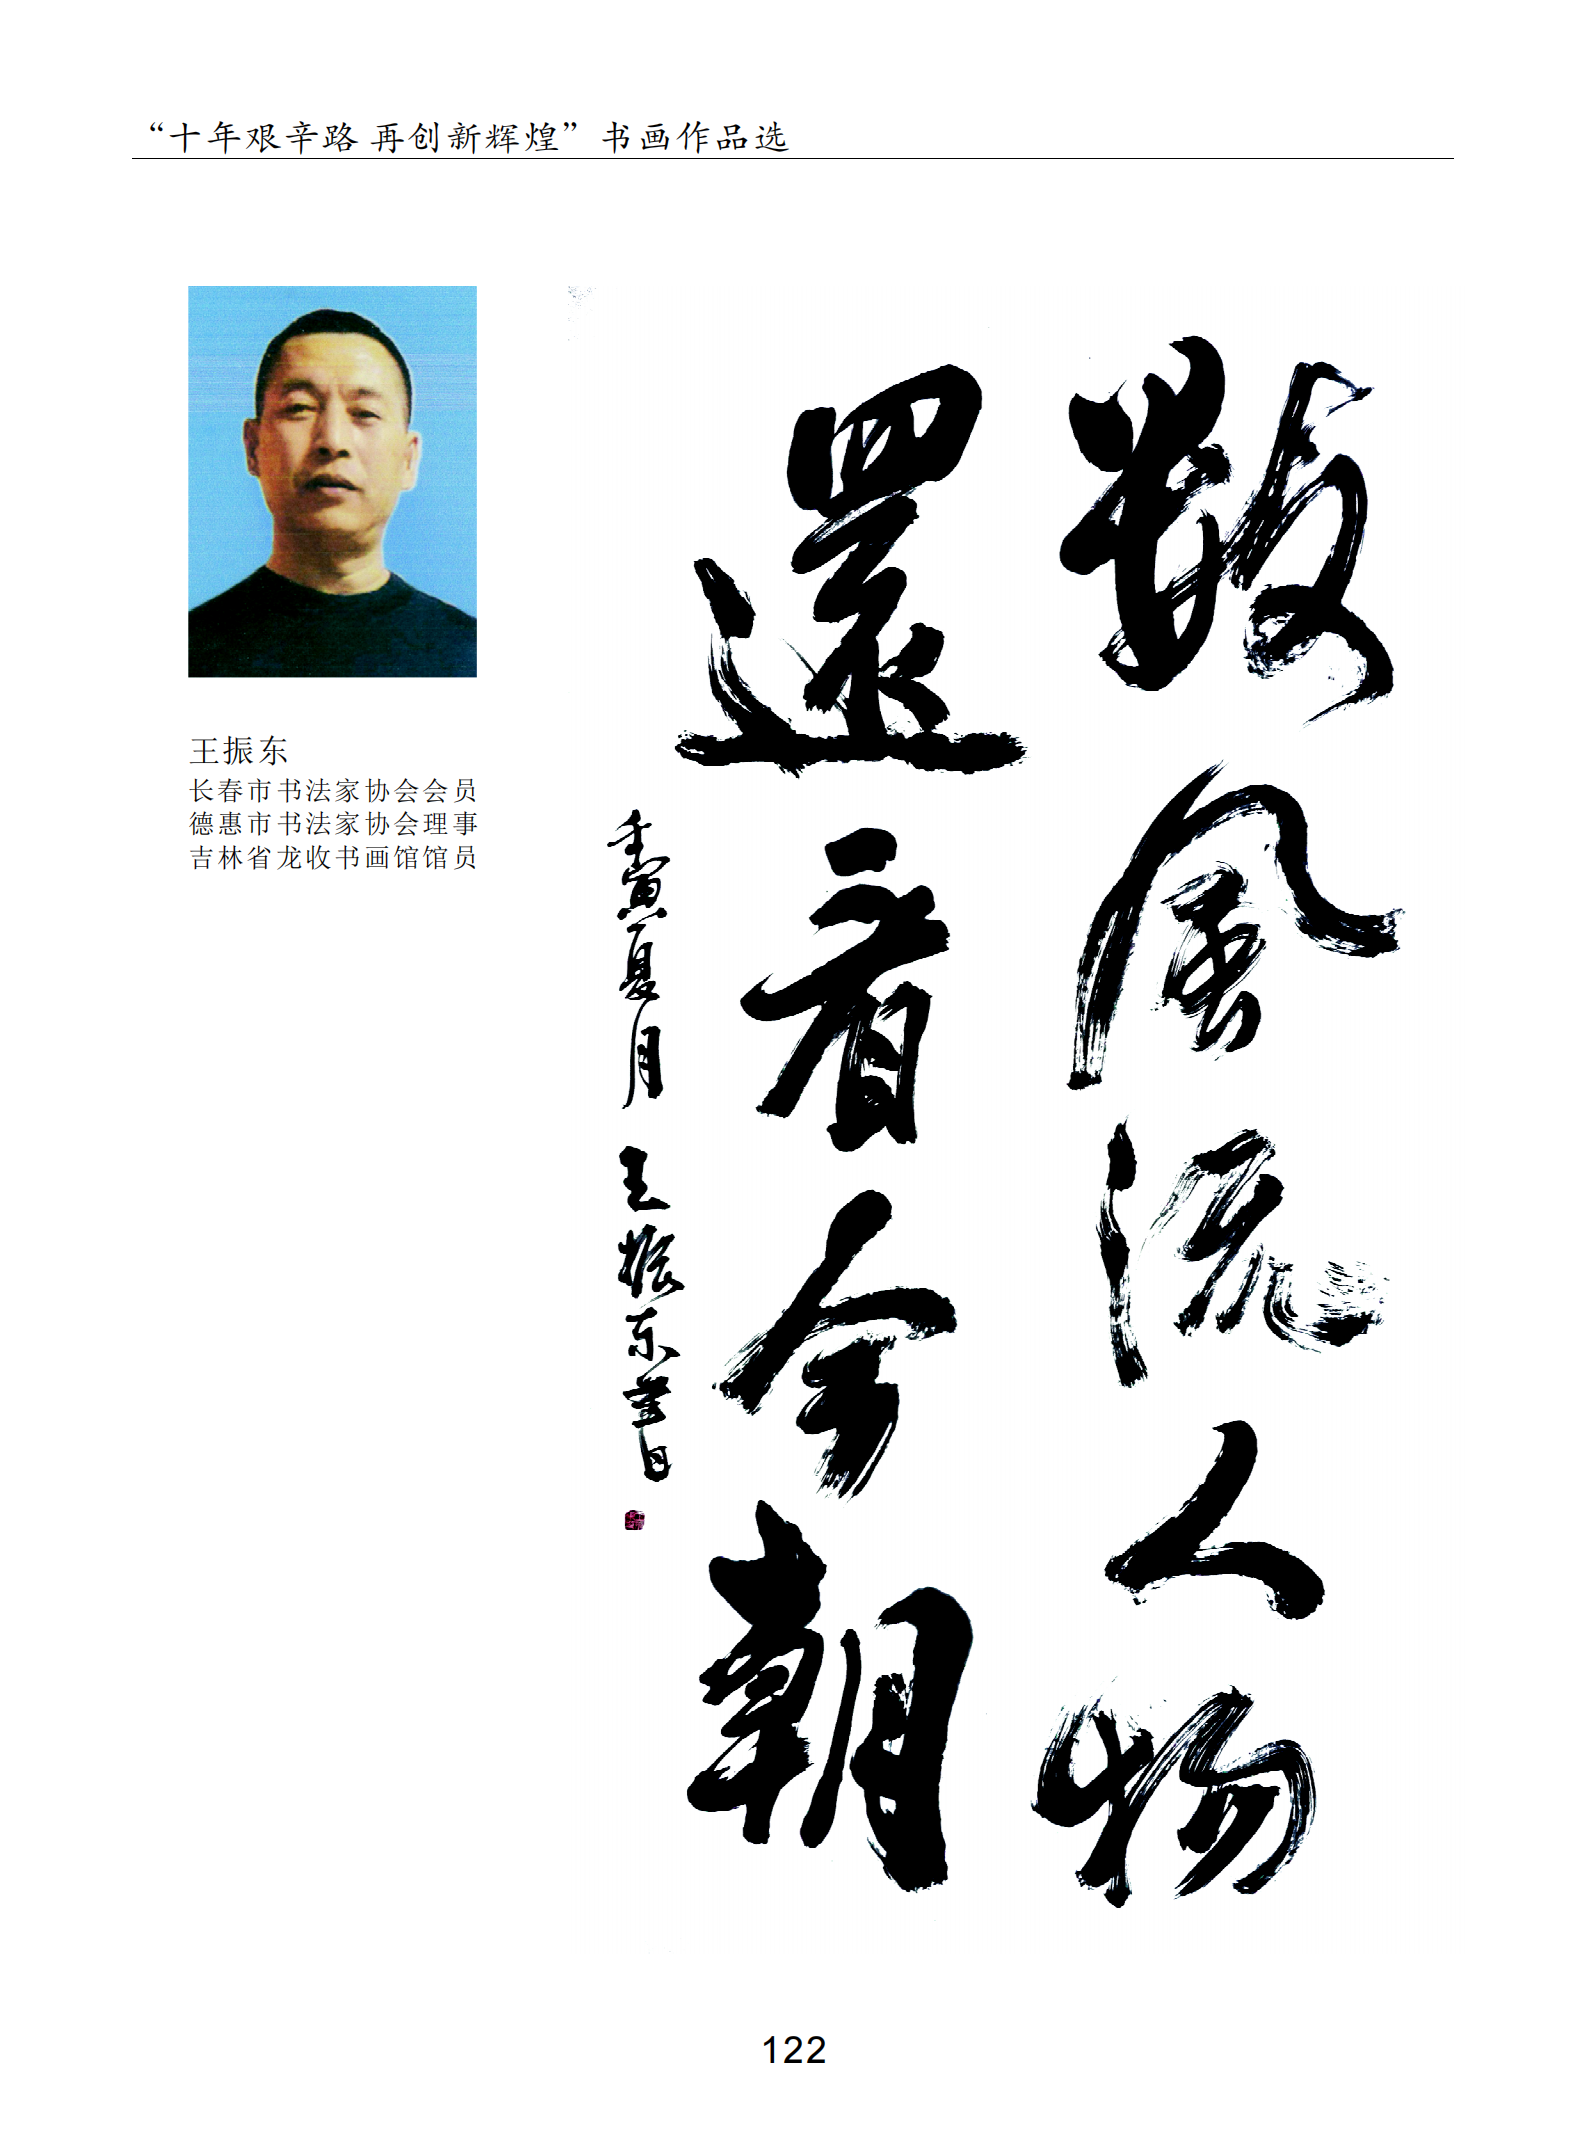 “十年艰辛路 再创新辉煌”书画作品选
王振东
长春市书法家协会会员
德惠市书法家协会理事
吉林省龙收书画馆馆员
数风流人物
還看今朝
壬寅夏月 王振东书
122